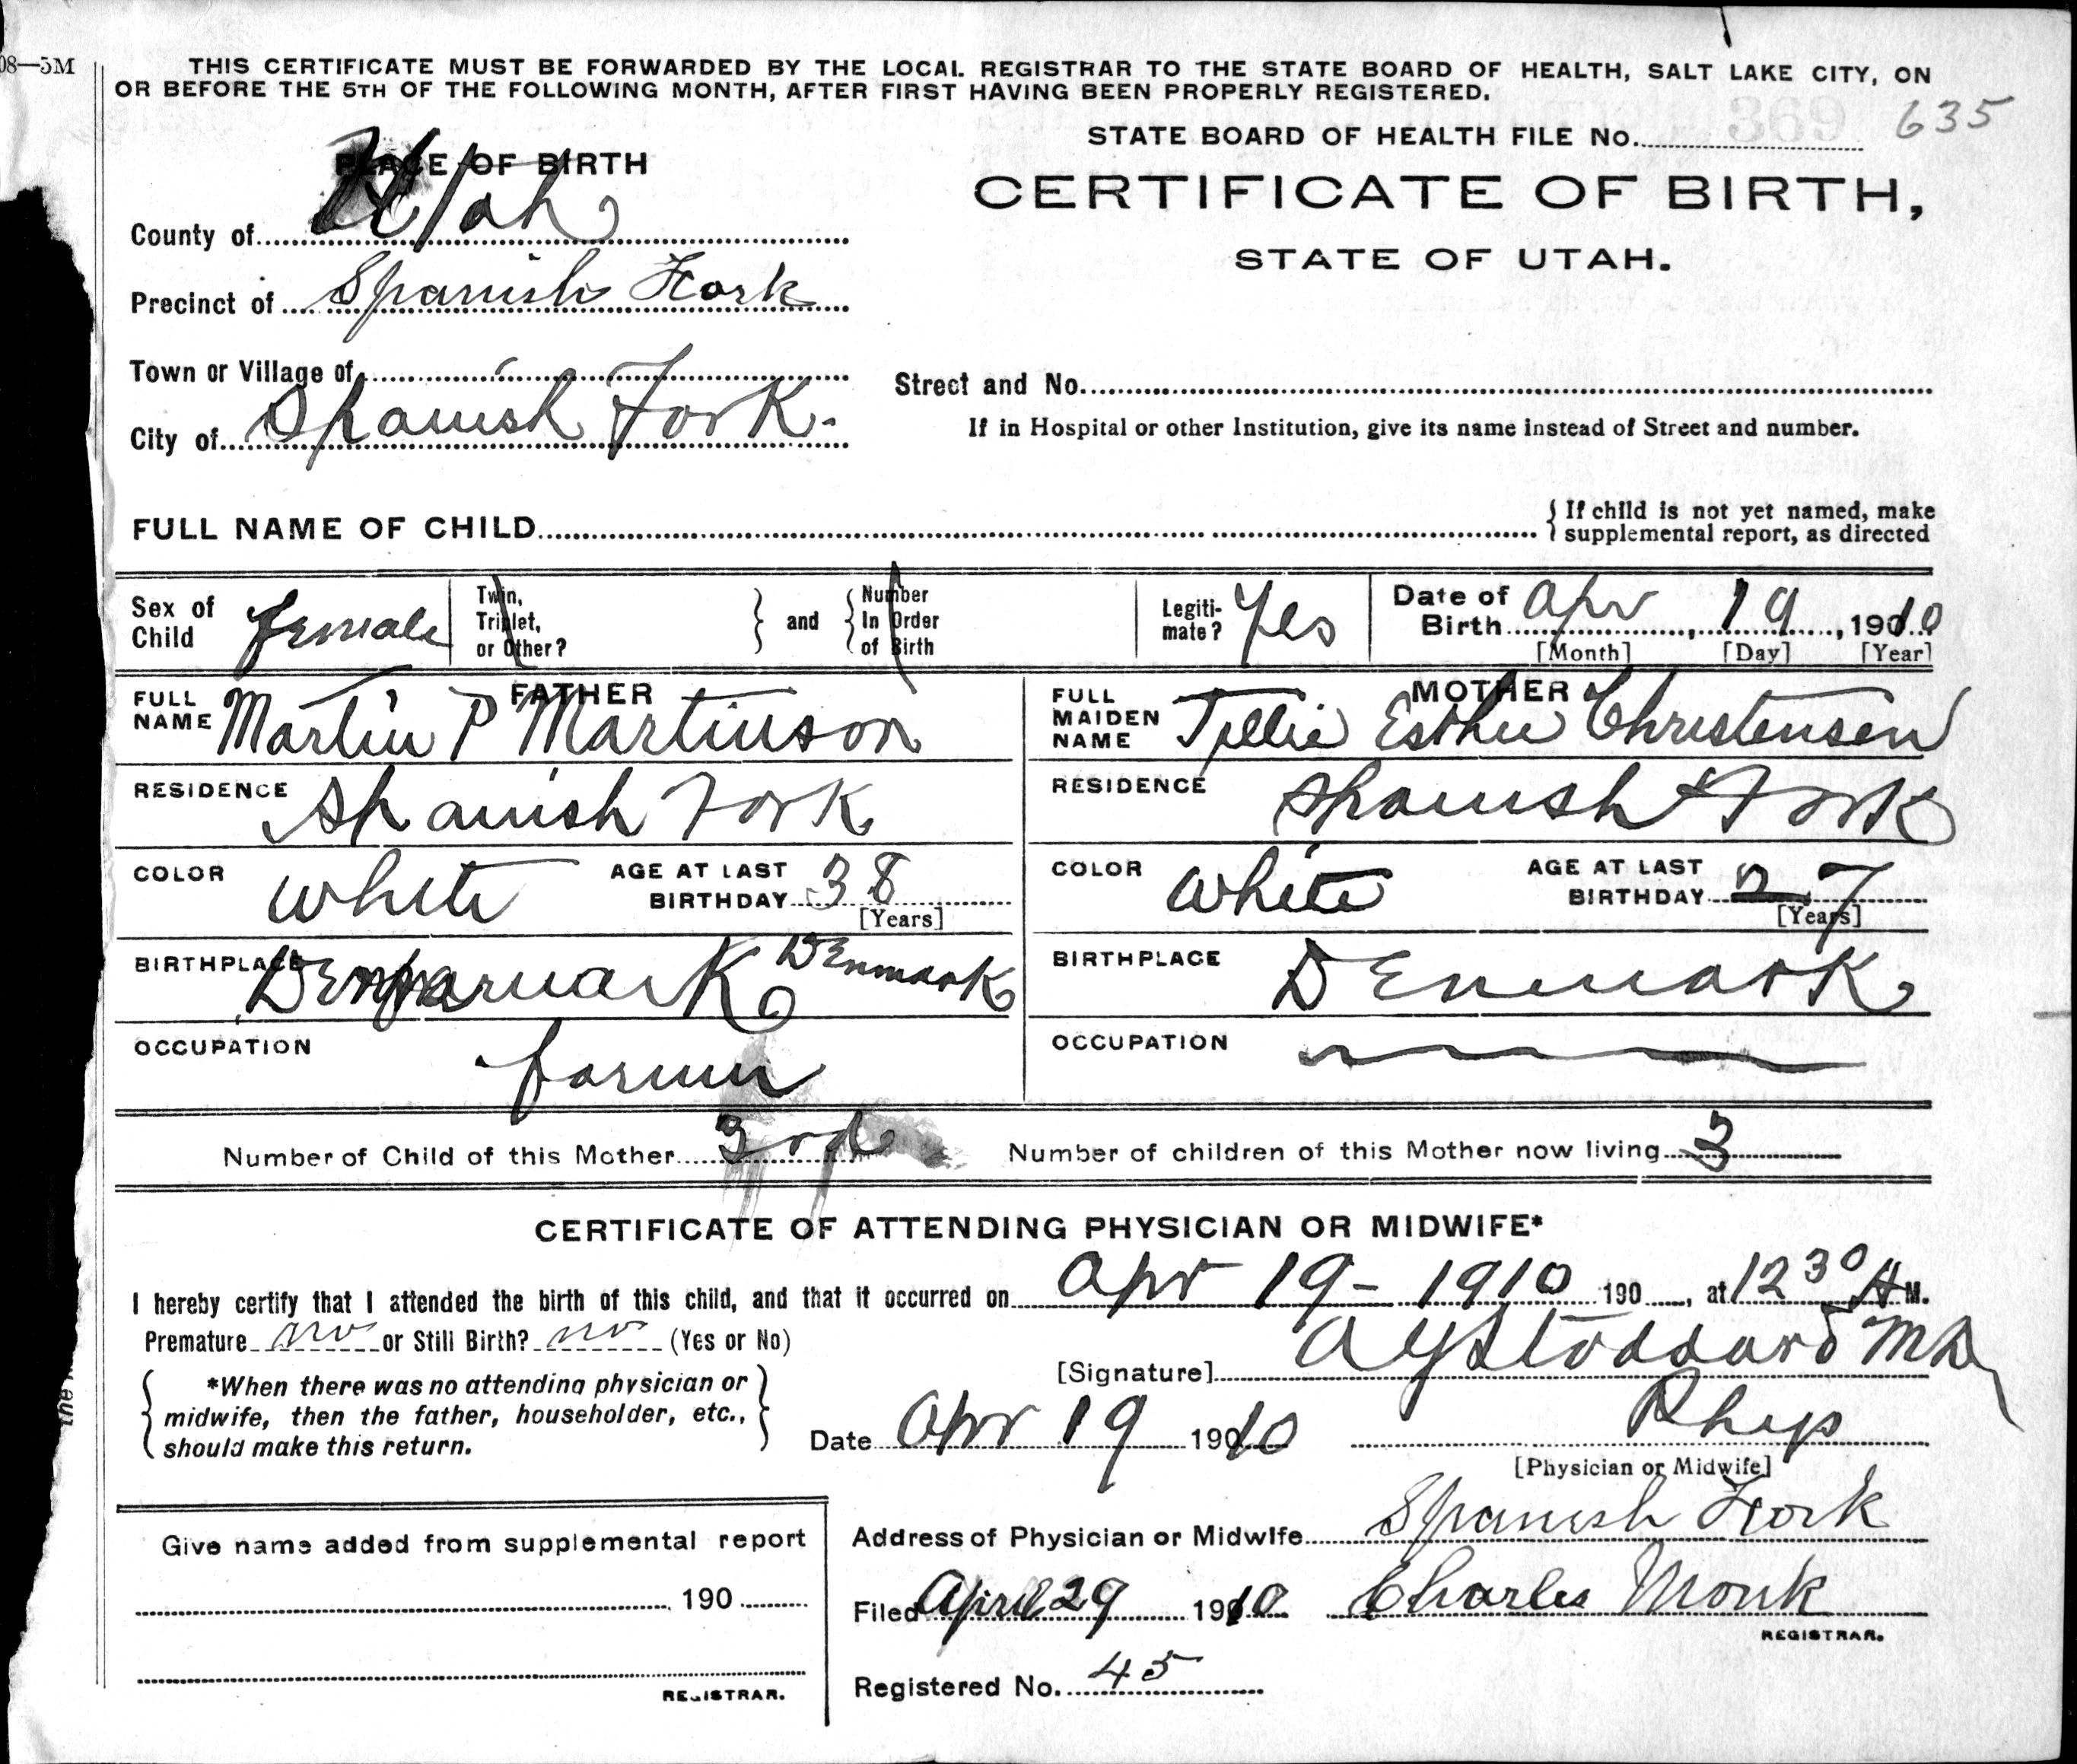 08—5M
THIS CERTIFICATE MUST BE FORWARDED BY THE LOCAL REGISTRAR TO THE STATE BOARD OF HEALTH, SALT LAKE CITY, ON
OR BEFORE THE 5TH OF THE FOLLOWING MONTH, AFTER FIRST HAVING BEEN PROPERLY REGISTERED.
STATE BOARD OF HEALTH FILE No. 369 635
PLACE OF BIRTH
CERTIFICATE OF BIRTH,
STATE OF UTAH.
County of Utah
Precinct of Spanish Fork
Town or Village of
Street and No.
City of Spanish Fork.
If in Hospital or other Institution, give its name instead of Street and number.
FULL NAME OF CHILD { If child is not yet named, make
supplemental report, as directed
Sex of
Child female
Twin,
Triplet,
or Other?
} and {
Number
In Order
of Birth
Legiti-
mate? Yes
Date of
Birth Apr, 19, 1910
[Month] [Day] [Year]
FATHER
FULL
NAME Martin P Martinson
MOTHER
FULL
MAIDEN
NAME Tillie Esther Christensen
RESIDENCE Spanish Fork
RESIDENCE Spanish Fork
COLOR White AGE AT LAST
BIRTHDAY 38
[Years]
COLOR White AGE AT LAST
BIRTHDAY 27
[Years]
BIRTHPLACE Denmark Denmark
BIRTHPLACE Denmark
OCCUPATION farmer
OCCUPATION
Number of Child of this Mother 3rd
Number of children of this Mother now living 3
CERTIFICATE OF ATTENDING PHYSICIAN OR MIDWIFE*
I hereby certify that I attended the birth of this child, and that it occurred on Apr 19- 1910 190, at 12 30 A M.
Premature no or Still Birth? no (Yes or No)
[Signature] A Y Stoddard MD
{ *When there was no attending physician or
midwife, then the father, householder, etc.,
should make this return. }
Date Apr 19 1910
Phys
[Physician or Midwife]
Give name added from supplemental report
190
REGISTRAR.
Address of Physician or Midwife Spanish Fork
Filed April 29 1910 Charles Monk
REGISTRAR.
Registered No. 45